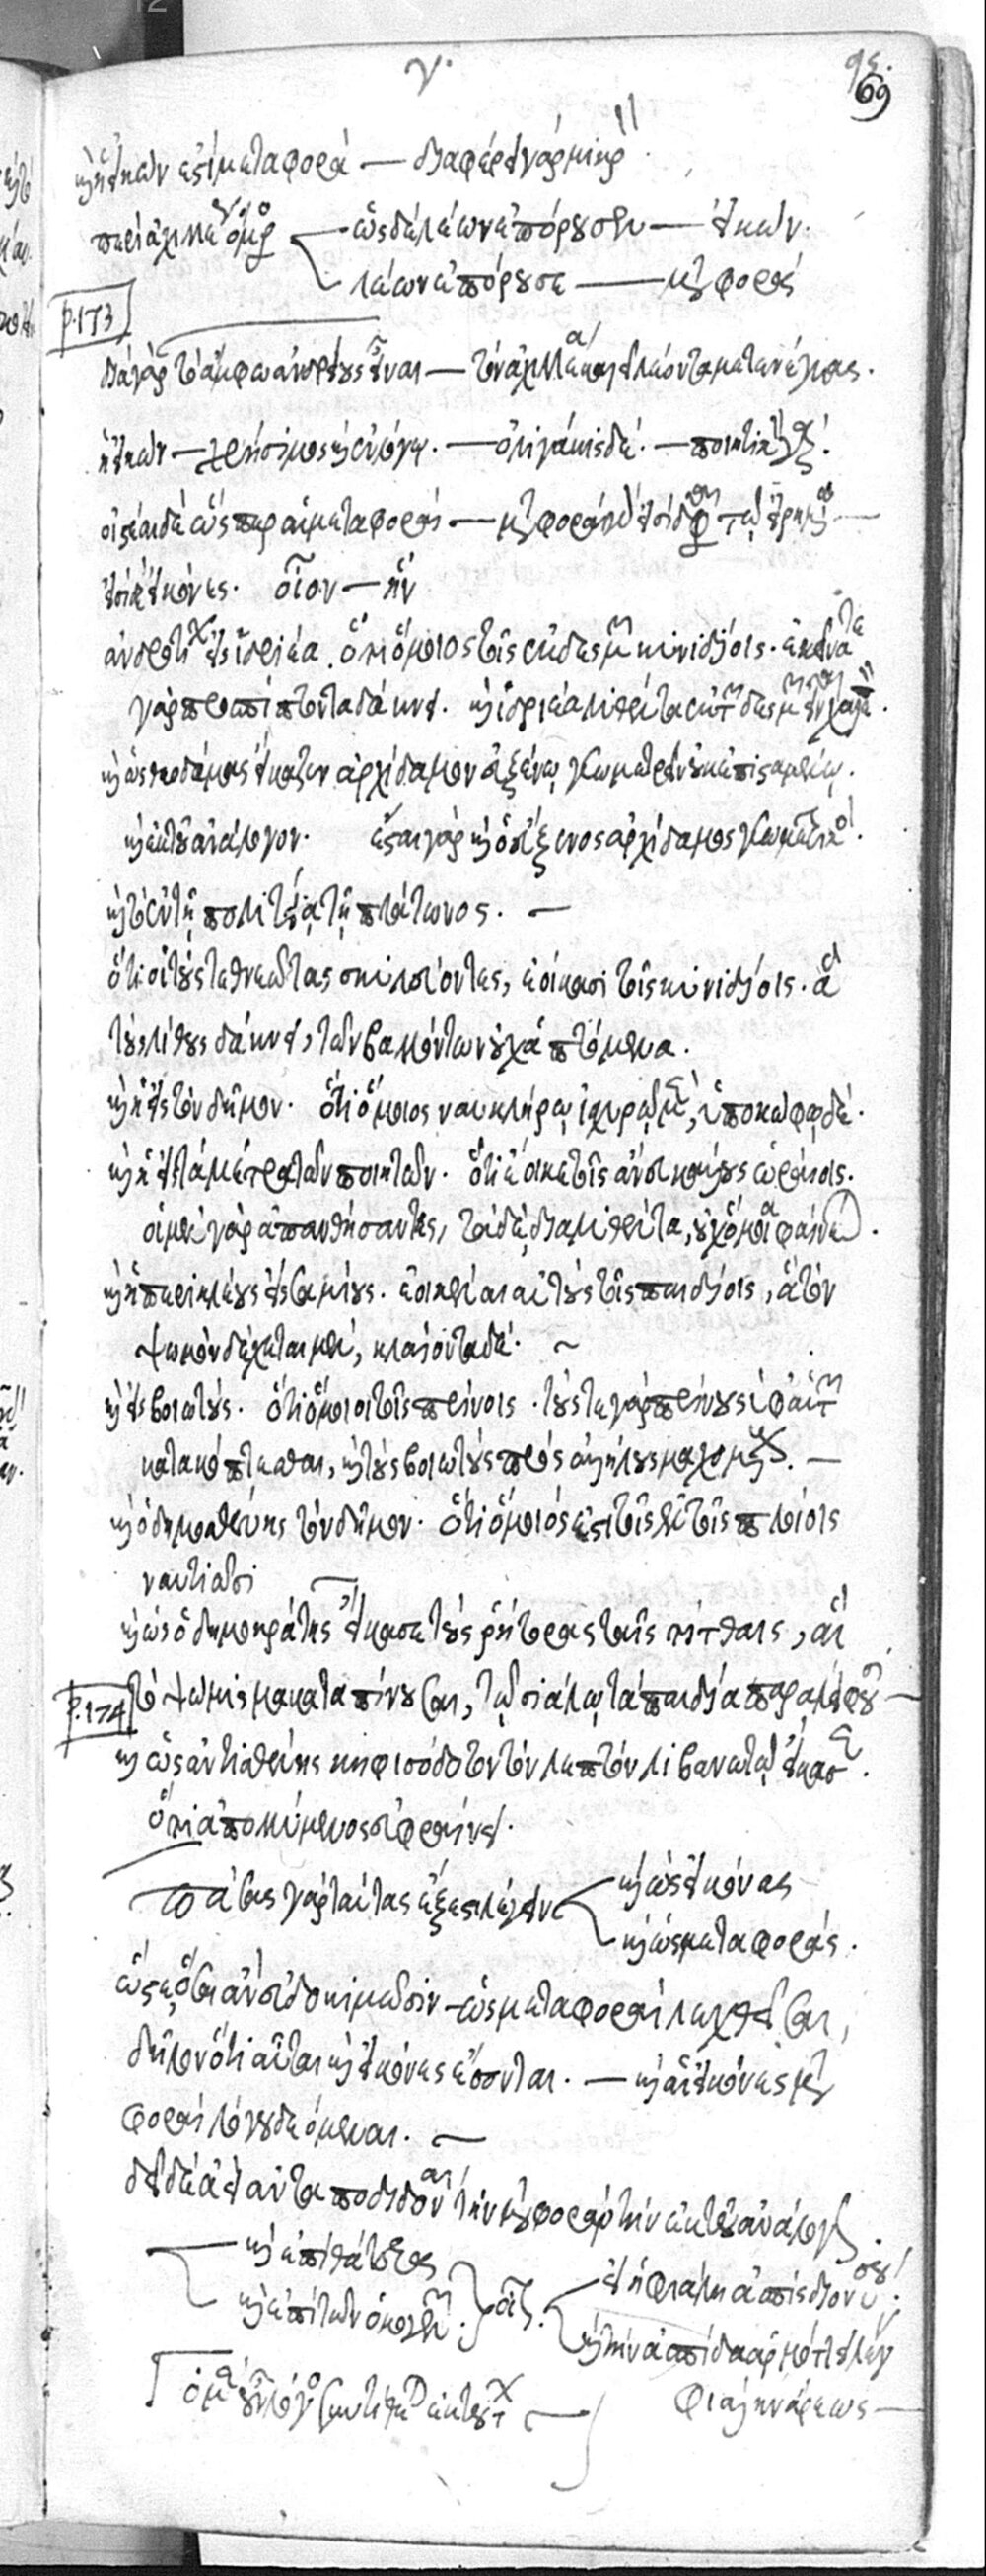 γ.
69
καὶ ἡ εἰκὼν ἐστὶ μεταφορά — διαφέρει γὰρ μικρ
περὶ ἀχιλλέως ὅμηρος — ὡς δὲ λέων ἐπόρουσεν — εἰκών.
λέων ἐπόρουσε — μεταφορά
p.173
διὰ γὰρ τὸ ἄμφω ἀνδρείους εἶναι — τὸν ἀχιλλέα καὶ λέοντα μετενέγκας.
ἡ εἰκὼν — χρήσιμος καὶ ἐν λόγῳ. — ὀλιγάκις δέ. — ποιητικὴ γάρ.
οἰστέαι δὲ ὥσπερ αἱ μεταφοραί — μεταφοραὶ τῷ εἰρημένῳ —
εἰσὶν εἰκόνες. οἷον — ἣν
ἀνδροτίων εἰς ἰδριέα. ὅτι ὅμοιος τοῖς ἐκ δεσμῶν κυνιδίοις. ἐκεῖνά τε
γὰρ προσπίπτοντα δάκνει. καὶ ἰδριέα λυθέντα ἐκ τῶν δεσμῶν εἶναι χαλεπόν.
καὶ ὡς θεοδάμας εἴκαζεν ἀρχίδαμον εὐξένῳ γεωμετρεῖν οὐκ ἐπισταμένῳ.
καὶ ἐκ τοῦ ἀνάλογον. ἔσται γὰρ καὶ ὁ εὔξενος ἀρχίδαμος γεωμετρικός.
καὶ τὸ ἐν τῇ πολιτείᾳ τῇ πλάτωνος. —
ὅτι οἱ τοὺς τεθνεῶτας σκυλεύοντες, ἐοίκασι τοῖς κυνιδίοις. ἃ
τοὺς λίθους δάκνει, τῶν βαλλόντων οὐχ ἁπτόμενα.
καὶ ἡ εἰς τὸν δῆμον. ὅτι ὅμοιος ναυκλήρῳ ἰσχυρῷ μὲν, ὑποκώφῳ δέ.
καὶ ἡ εἰς τὰ μέτρα τῶν ποιητῶν. ὅτι ἔοικε τοῖς ἄνευ κάλλους ὡραίοις.
οἱ μὲν γὰρ ἀπανθήσαντες, τὰ δὲ διαλυθέντα, οὐχ ὅμοια φαίνεται.
καὶ ἡ περικλέους εἰς σαμίους. ἐοικέναι αὐτοὺς τοῖς παιδίοις, ἃ τὸν
ψωμὸν δέχεται μὲν, κλαίοντα δέ. ~
καὶ εἰς βοιωτούς. ὅτι ὅμοιοι τοῖς πρίνοις. τούς τε γὰρ πρίνους ὑφ' αὑτῶν
κατακόπτεσθαι, καὶ τοὺς βοιωτοὺς πρὸς ἀλλήλους μαχομένους. —
καὶ ὁ δημοσθένης τὸν δῆμον. ὅτι ὅμοιός ἐστι τοῖς ἐν τοῖς πλοίοις
ναυτιῶσι
καὶ ὡς ὁ δημοκράτης εἴκασε τοὺς ῥήτορας ταῖς τίτθαις, αἳ
p.174
τὸ ψώμισμα καταπίνουσαι, τῷ σιάλῳ τὰ παιδία παραλείφουσι —
καὶ ὡς ἀντισθένης κηφισόδοτον τὸν λεπτὸν λιβανωτῷ εἴκασεν.
ὅτι ἀπολλύμενος εὐφραίνει.
πάσας γὰρ ταύτας ἔξεστι λέγειν
καὶ ὡς εἰκόνας
καὶ ὡς μεταφοράς.
ὥστε ὅσαι ἂν εὐδοκιμῶσιν ὡς μεταφοραὶ λεχθεῖσαι,
δῆλον ὅτι αὗται καὶ εἰκόνες ἔσονται. — καὶ αἱ εἰκόνες μετα
φοραὶ λόγου δεόμεναι. —
δεῖ δὲ ἀεὶ ἀνταποδιδόναι τὴν μεταφορὰν τὴν ἐκ τοῦ ἀνάλογον.
καὶ ἐπὶ θάτερα
καὶ ἐπὶ τῶν ὁμογενῶν.
οἷον.
εἰ ἡ φιάλη ἀσπὶς διονύσου.
καὶ τὴν ἀσπίδα ἁρμόττει λέγειν
φιάλην ἄρεως —
ὁ μὲν οὖν λόγος συντίθεται ἐκ τούτων —